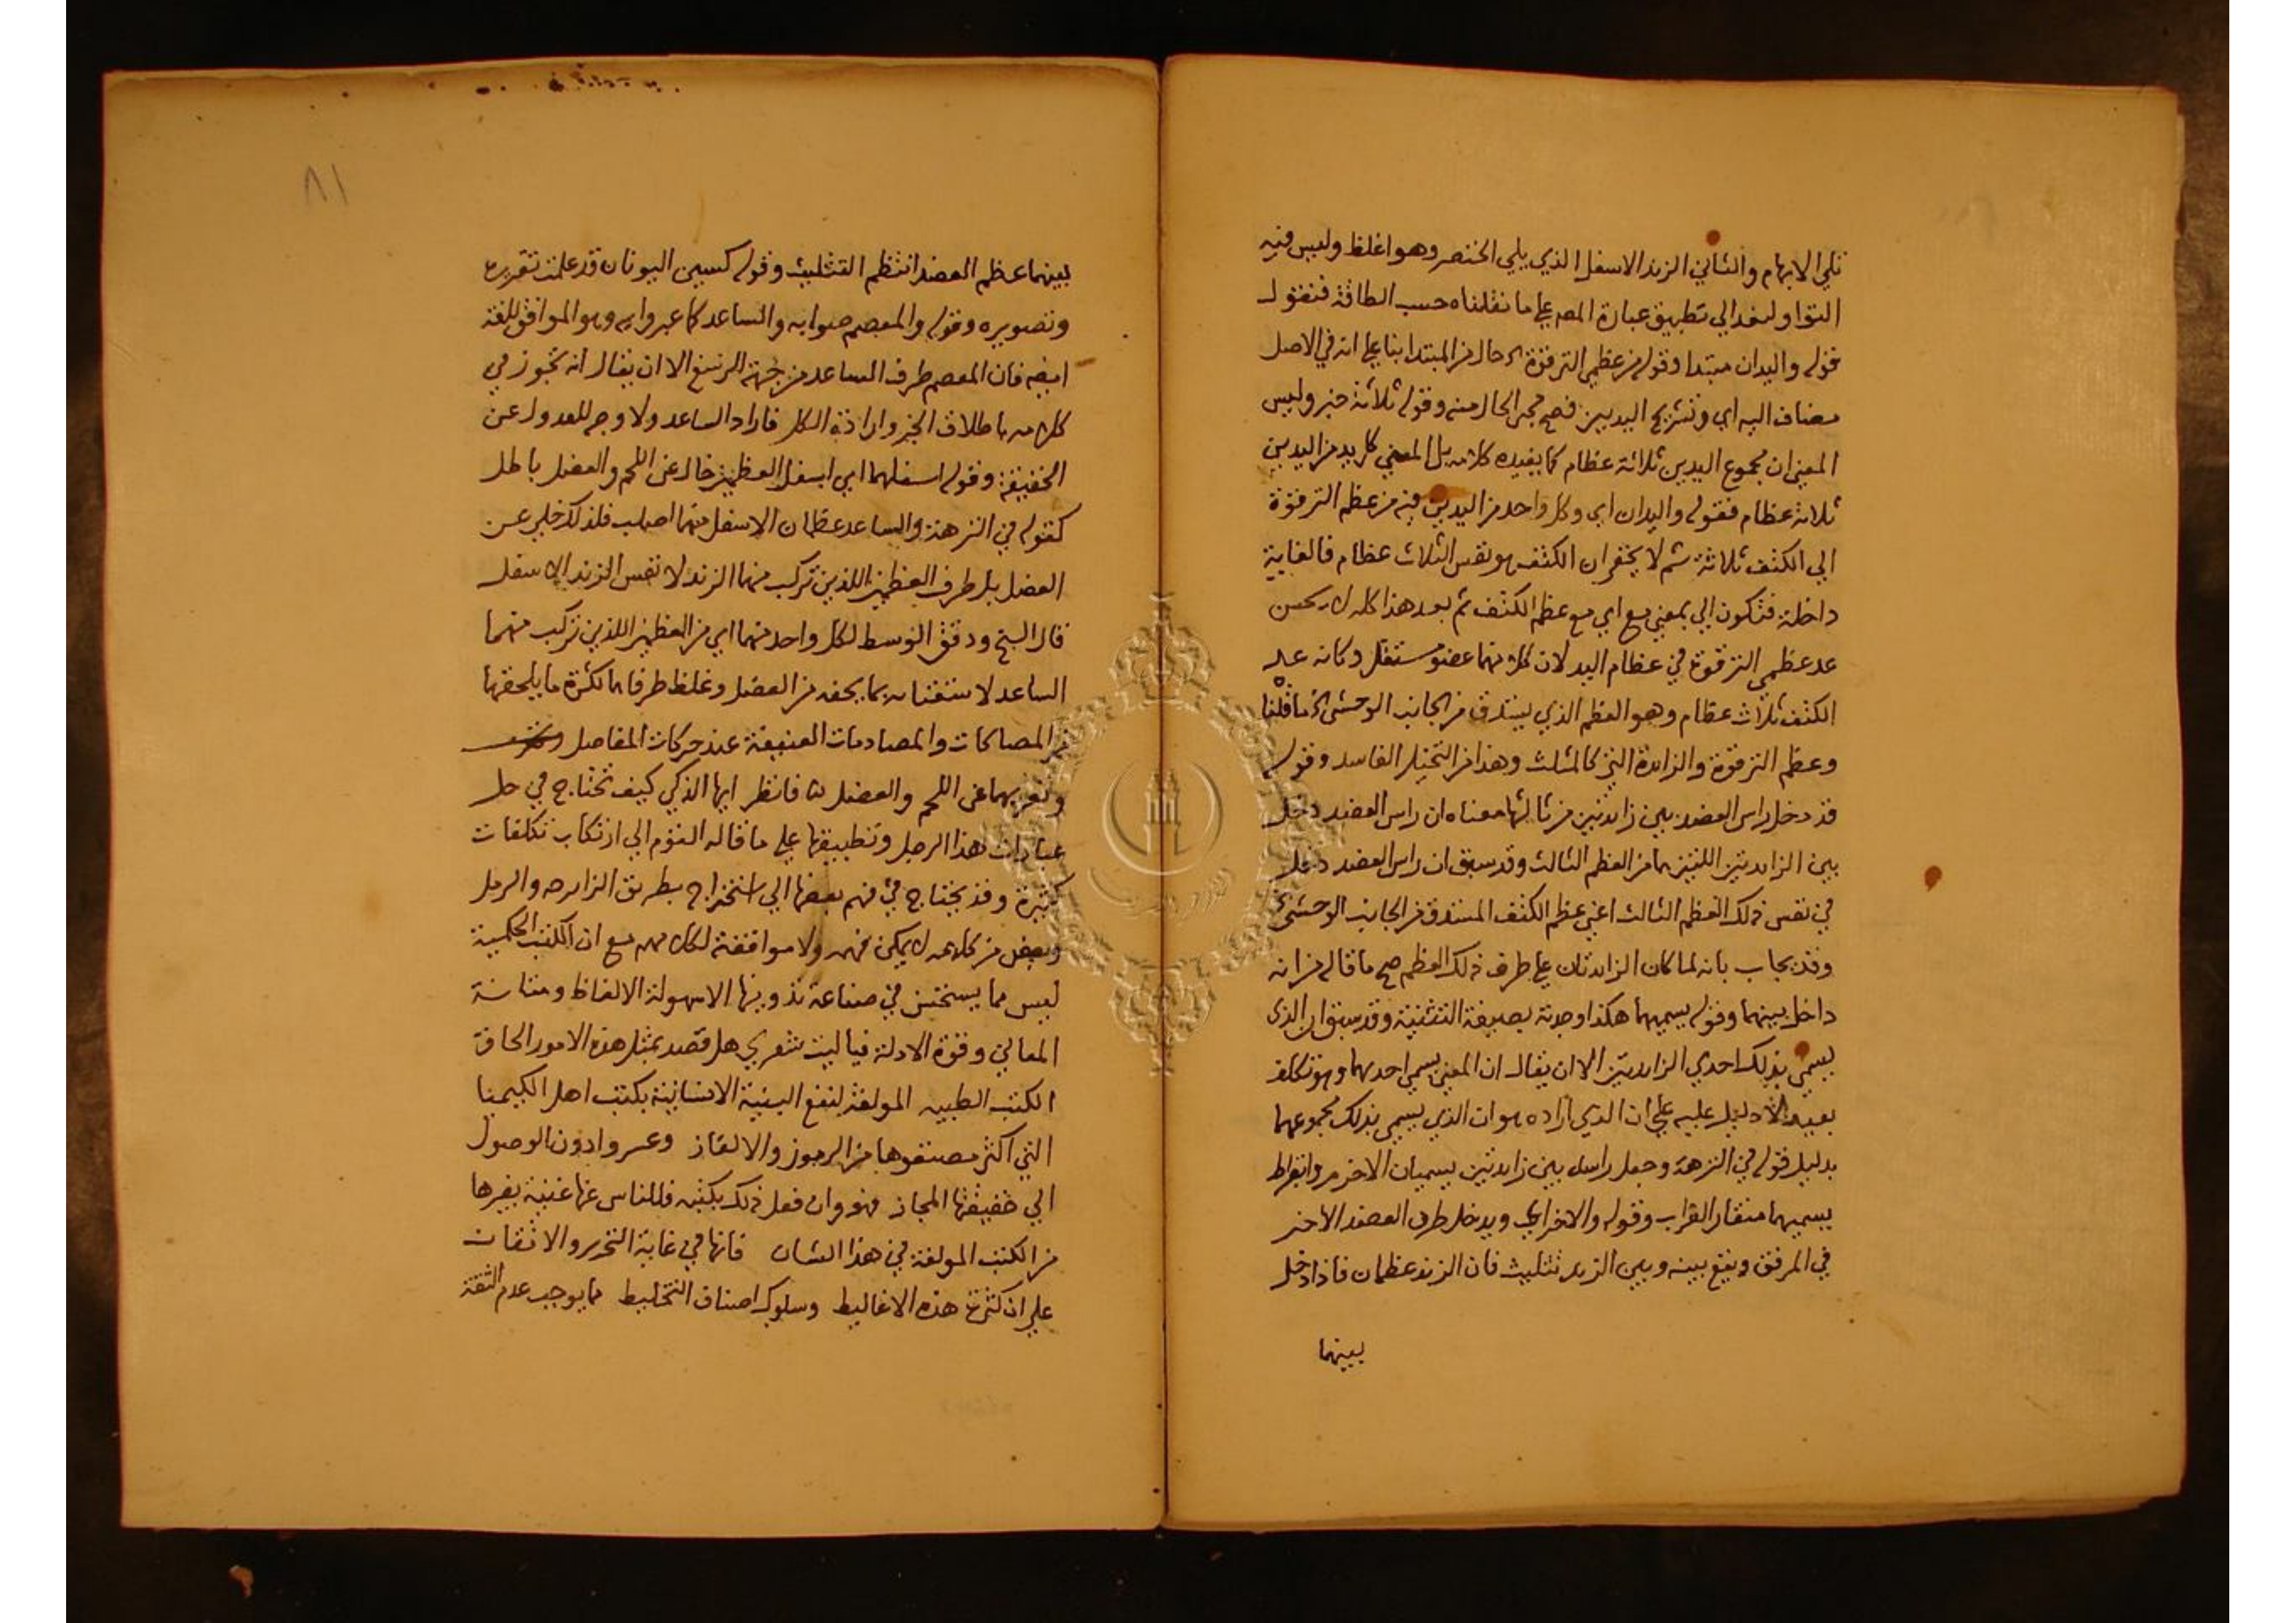 تلي الابهام والثاني الزند الاسفل الذي يلي الخنصر وهو اغلظ وليس فيه
التوا ولنعد الي تطبيق عبارة المص علي ما نقلناه حسب الطاقة فنقول
قوله واليدان مبتدا وقوله من عظمي الترقوة حال من المبتدا بنا علي انه في الاصل
مضاف اليه اي وتشريح اليدين فصح مجي الحال منه وقوله ثلاثة خبر وليس
المعني ان مجموع اليدين ثلاثة عظام كما يفيده كلامه بل المعني كل يد من اليدين
ثلاثة عظام فقوله واليدان اي وكل واحد من اليدين فيه من عظم الترقوة
الي الكتف ثلاثة ثم لا يخفي ان الكتف هو نفس الثلاث عظام فالغاية
داخلة فتكون الي بمعني مع اي مع عظم الكتف ثم بعد هذا كله لا يحسن
عد عظمي الترقوة في عظام اليد لان كلا منهما عضو مستقل وكانه عد
الكتف ثلاث عظام وهو العظم الذي يستدق من الجانب الوحشي كما قلنا
وعظم الترقوة والزايدة التي كالمثلث وهذا من التخيل الفاسد وقوله
قد دخل راس العضد بين زايدتين من ثالثها معناه ان راس العضد دخل
بين الزايدتين اللتين هما من العظم الثالث وقد سبق ان راس العضد دخل
في نفس ذلك العظم الثالث اعني عظم الكتف المستدق من الجانب الوحشي
وقد يجاب بانه لما كان الزايدتان علي طرف ذلك العظم صح ما قاله من انه
داخل بينهما وقوله يسميهما هكذا وجدته بصيغة التثنية وقد سبق ان الذي
يسمي بذلك احدي الزايدتين الا ان يقال ان المعني يسمي احديهما وهو تكلف
بعيد لا دليل عليه علي ان الذي اراده هو ان الذي يسمي بذلك مجموعهما
بدليل قوله في النزهة وجعل راسه بين زايدتين يسميان الاخرم وابقراط
يسميهما منقار الغراب وقوله والاخر اي ويدخل طرف العضد الاخر
في المرفق ويقع بينه وبين الزند تثليث فان الزند عظمان فاذا دخل
بينهما
٨١
بينهما عظم العضد انتظم التثليث وقوله كسين اليونان قد علمت تقريره
وتصويره وقوله والمعصم صوابه والساعد كما عبر وابه وهو الموافق للغة
ايضه فان المعصم طرف الساعد من جهة الرسغ الا ان يقال انه تجوز في
كلامه باطلاق الجز وارادة الكل فاراد الساعد ولا وجه للعدول عن
الحقيقة وقوله اسفلهما اي اسفل العظمين خال عن اللحم والعضل باطل
كقوله في النزهة والساعد عظمان الاسفل منهما اصلب فلذلك خلي عن
العضل بل طرف العظمين اللذين تركب منهما الزند لا نفس الزند الاسفل
قال الشيخ ودقق الوسط لكل واحد منهما اي من العظمين اللذين تركب منهما
الساعد لاستغنائه بما يحفه من العضل وغلظ طرفاهما لكثرة ما يلحقها
من المصاكات والمصادمات العنيفة عند حركات المفاصل
وتعريهما عن اللحم والعضل فانظر ايها الذكي كيف تحتاج في حل
عبارات هذا الرجل وتطبيقها علي ما قاله القوم الي ارتكاب تكلفات
كثيرة وقد يحتاج في فهم بعضها الي استخراج بطريق الزايرجه والرمل
وبعض من كلامه لا يمكن فهمه ولا موافقة لكلامهم مع ان الكتب الحكمية
ليس مما يستحسن في صناعة تدوينها الا سهولة الالفاظ ومتانة
المعاني وقوة الادلة فيا ليت شعري هل قصد بمثل هذه الامور الحاق
الكتب الطبيه المولفة لنفع البنية الانسانية بكتب اهل الكيميا
التي اكثر مصنفوها من الرموز والالغاز وعسروا دون الوصول
الي حقيقتها المجاز فهو وان فعل ذلك بكتبه فللناس عنها غنية بغيرها
من الكتب المولفة في هذا الشان فانها في غاية التحرير والاتقان
علي ان كثرة هذه الاغاليط وسلوك اصناف التخليط مما يوجب عدم الثقة